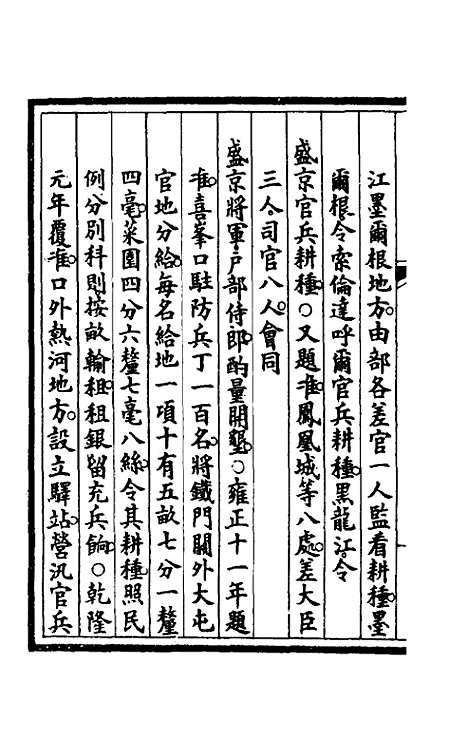 江墨爾根地方。由部各差官一人監看耕種。墨
爾根。令索倫達呼爾官兵耕種。黑龍江。令
盛京官兵耕種。○又題准。鳳凰城等八處。差大臣
三人。司官八人。會同
盛京將軍戶部侍郎。酌量開墾。○雍正十一年題
准。喜峯口駐防兵丁一百名。將鐵門關外大屯
官地分給。每名給地一項十有五畝七分一釐
四毫。菜園四分六釐七毫八絲。令其耕種。照民
例分別科則。按畝輸租。租銀留充兵餉。○乾隆
元年覆准。口外熱河地方。設立驛站。營汛官兵